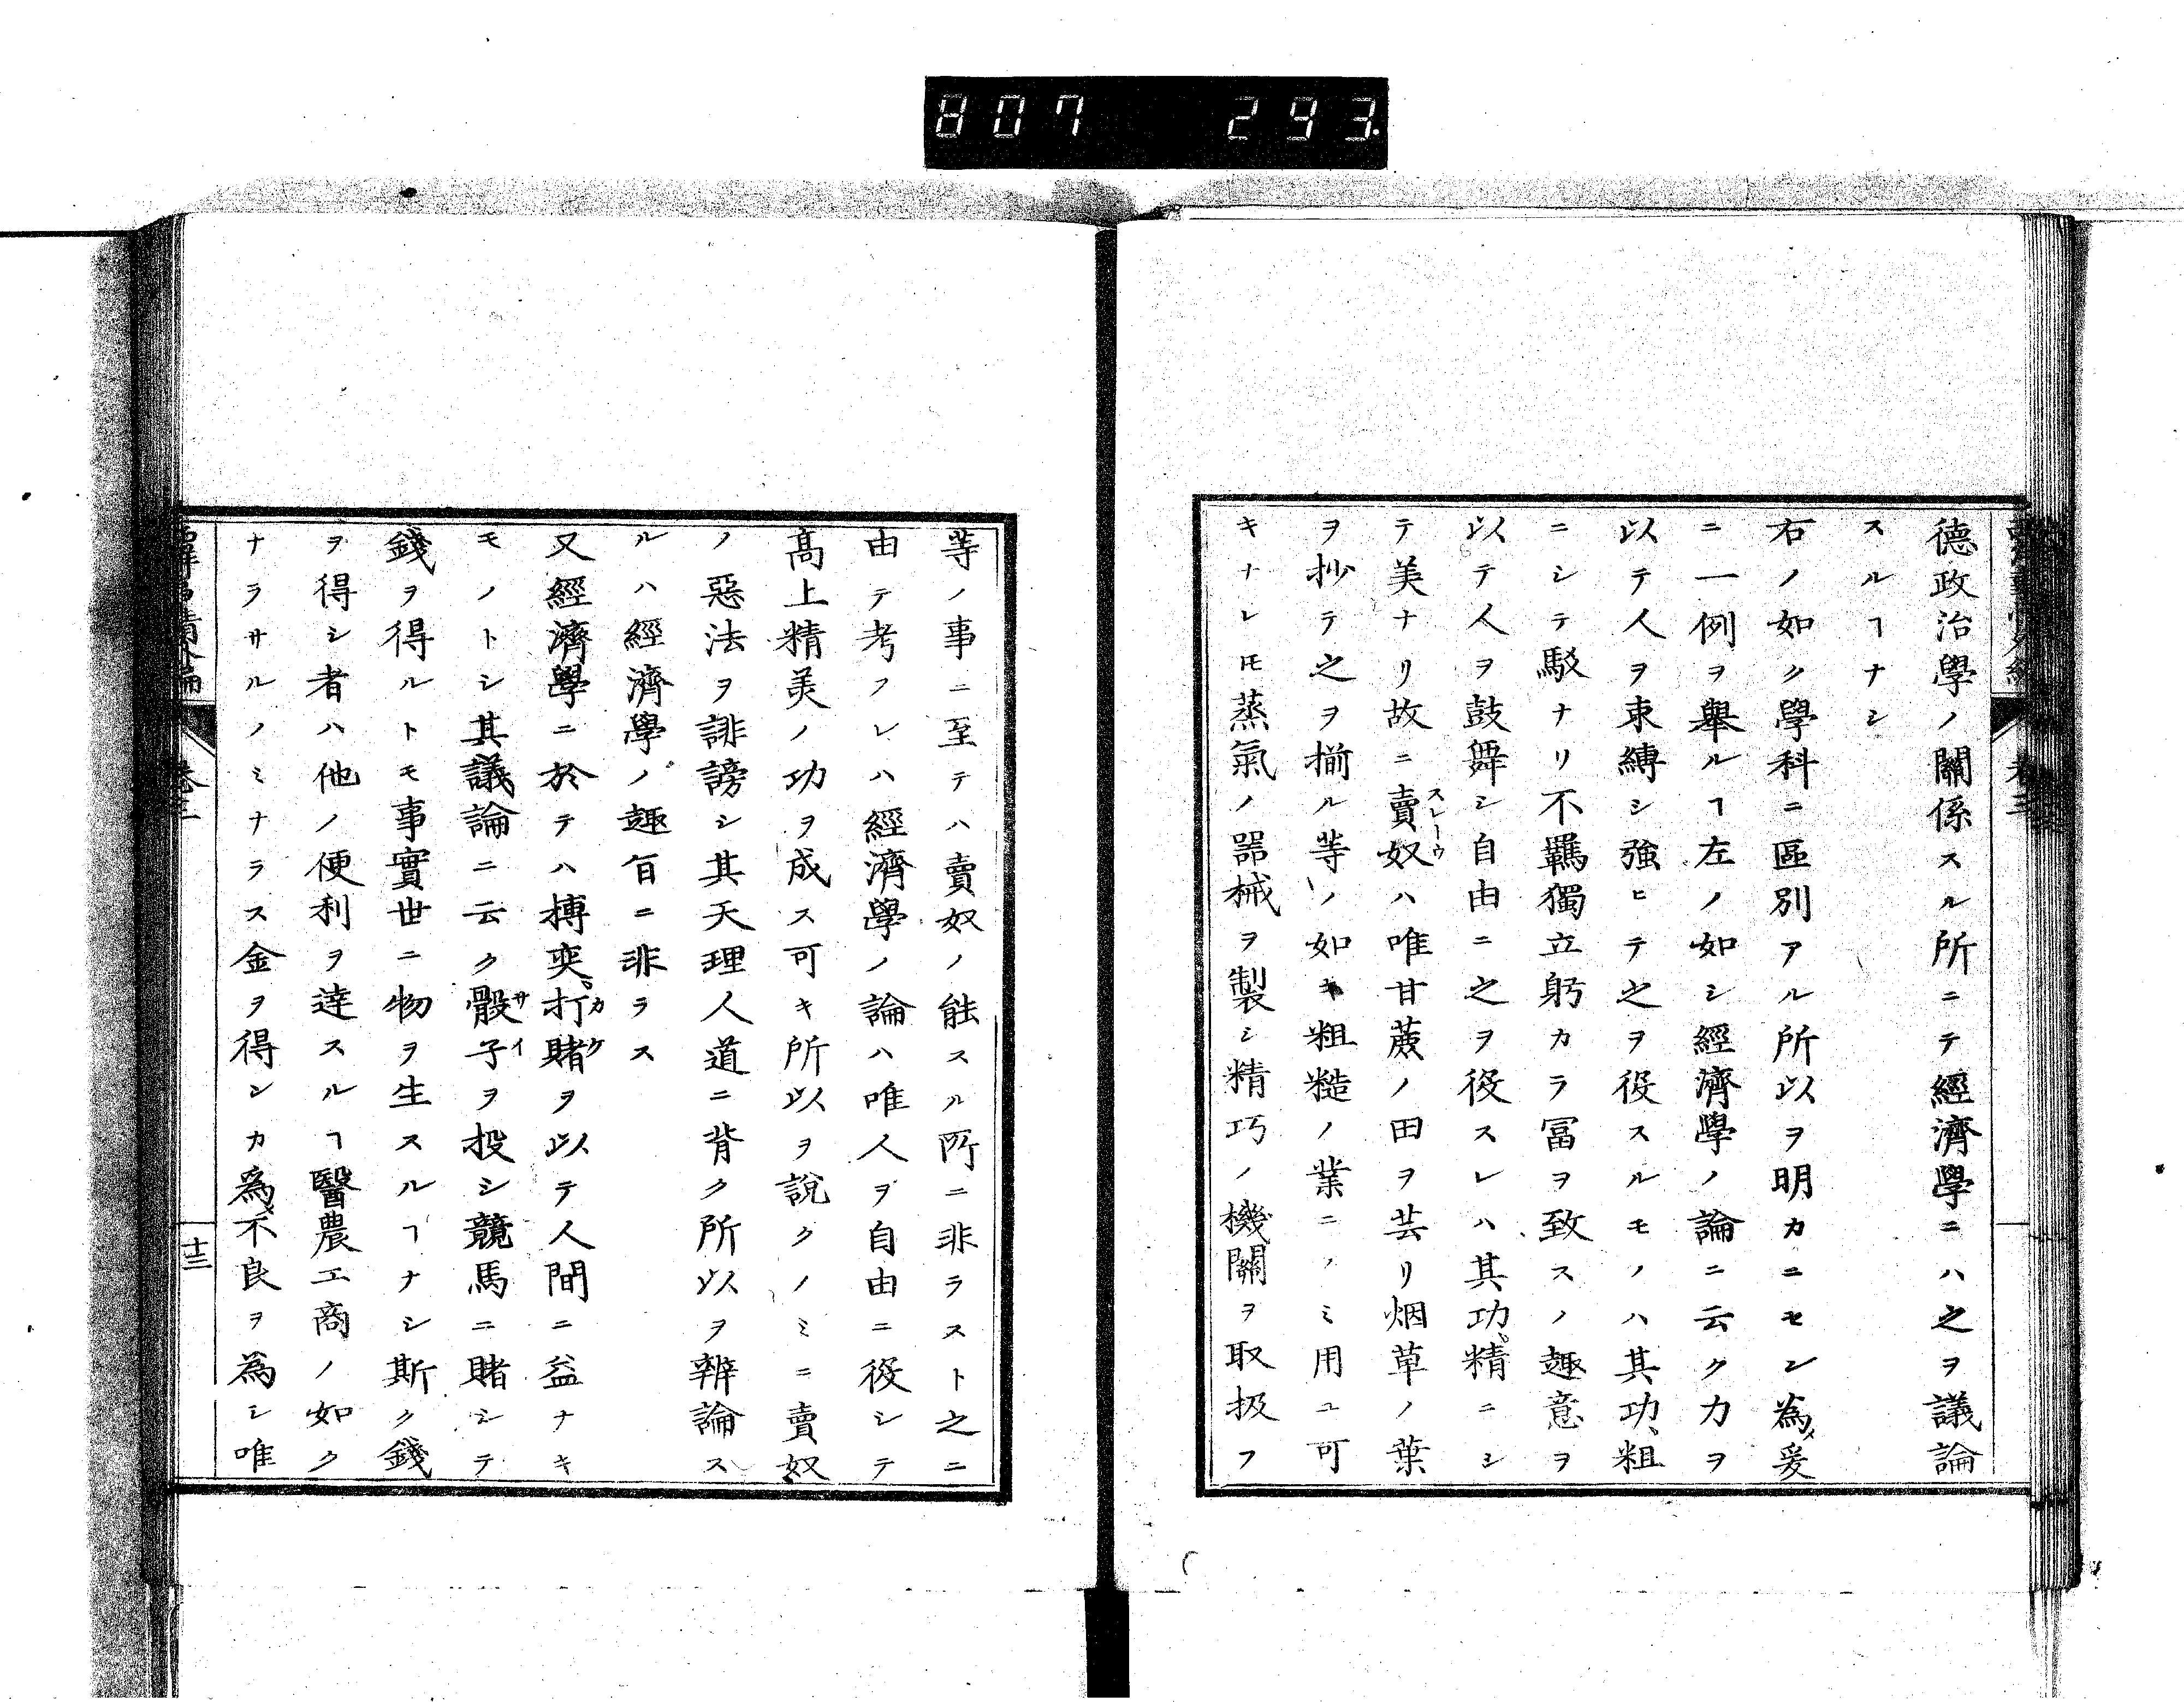 807 293.
德政治學ノ關係スル所ニテ經濟學ニハ之ヲ議論
スルヿナシ
右ノ如ク學科ニ區別アル所以ヲ明カニセン為メ爰
ニ一例ヲ舉ルヿ左ノ如シ經濟學ノ論ニ云ク力ヲ
以テ人ヲ束縛シ強ヒテ之ヲ役スルモノハ其功、粗
ニシテ駁ナリ不羈獨立躬カラ冨ヲ致スノ趣意ヲ
以テ人ヲ鼓舞シ自由ニ之ヲ役スレハ其功。精ニシ
テ美ナリ故ニ賣奴ハ唯甘蔗ノ田ヲ芸リ烟草ノ葉
スレーウ
ヲ抄テ之ヲ揃ル等ノ如キ粗糙ノ業ニノミ用ユ可
キナレ𪜈蒸氣ノ器械ヲ製シ精巧ノ機關ヲ取扱フ
等ノ事ニ至テハ賣奴ノ能スル所ニ非ラスト之ニ
由テ考フレハ經濟學ノ論ハ唯人ヲ自由ニ役シテ
髙上精美ノ功ヲ成ス可キ所以ヲ說クノミニ賣奴
ノ惡法ヲ誹謗シ其天理人道ニ背ク所以ヲ辨論ス
ルハ經濟學ノ趣旨ニ非ラス
又經濟學ニ於テハ博奕。打賭ヲ以テ人間ニ益ナキ
カケ
モノトシ其議論ニ云ク骰子ヲ投シ競馬ニ賭シテ
サイ
錢ヲ得ルトモ事實世ニ物ヲ生スルヿナシ斯ク錢
ヲ得シ者ハ他ノ便利ヲ達スルヿ醫農工商ノ如ク
ナラサルノミナラス金ヲ得ンカ為、不良ヲ為シ唯
卷三
十三